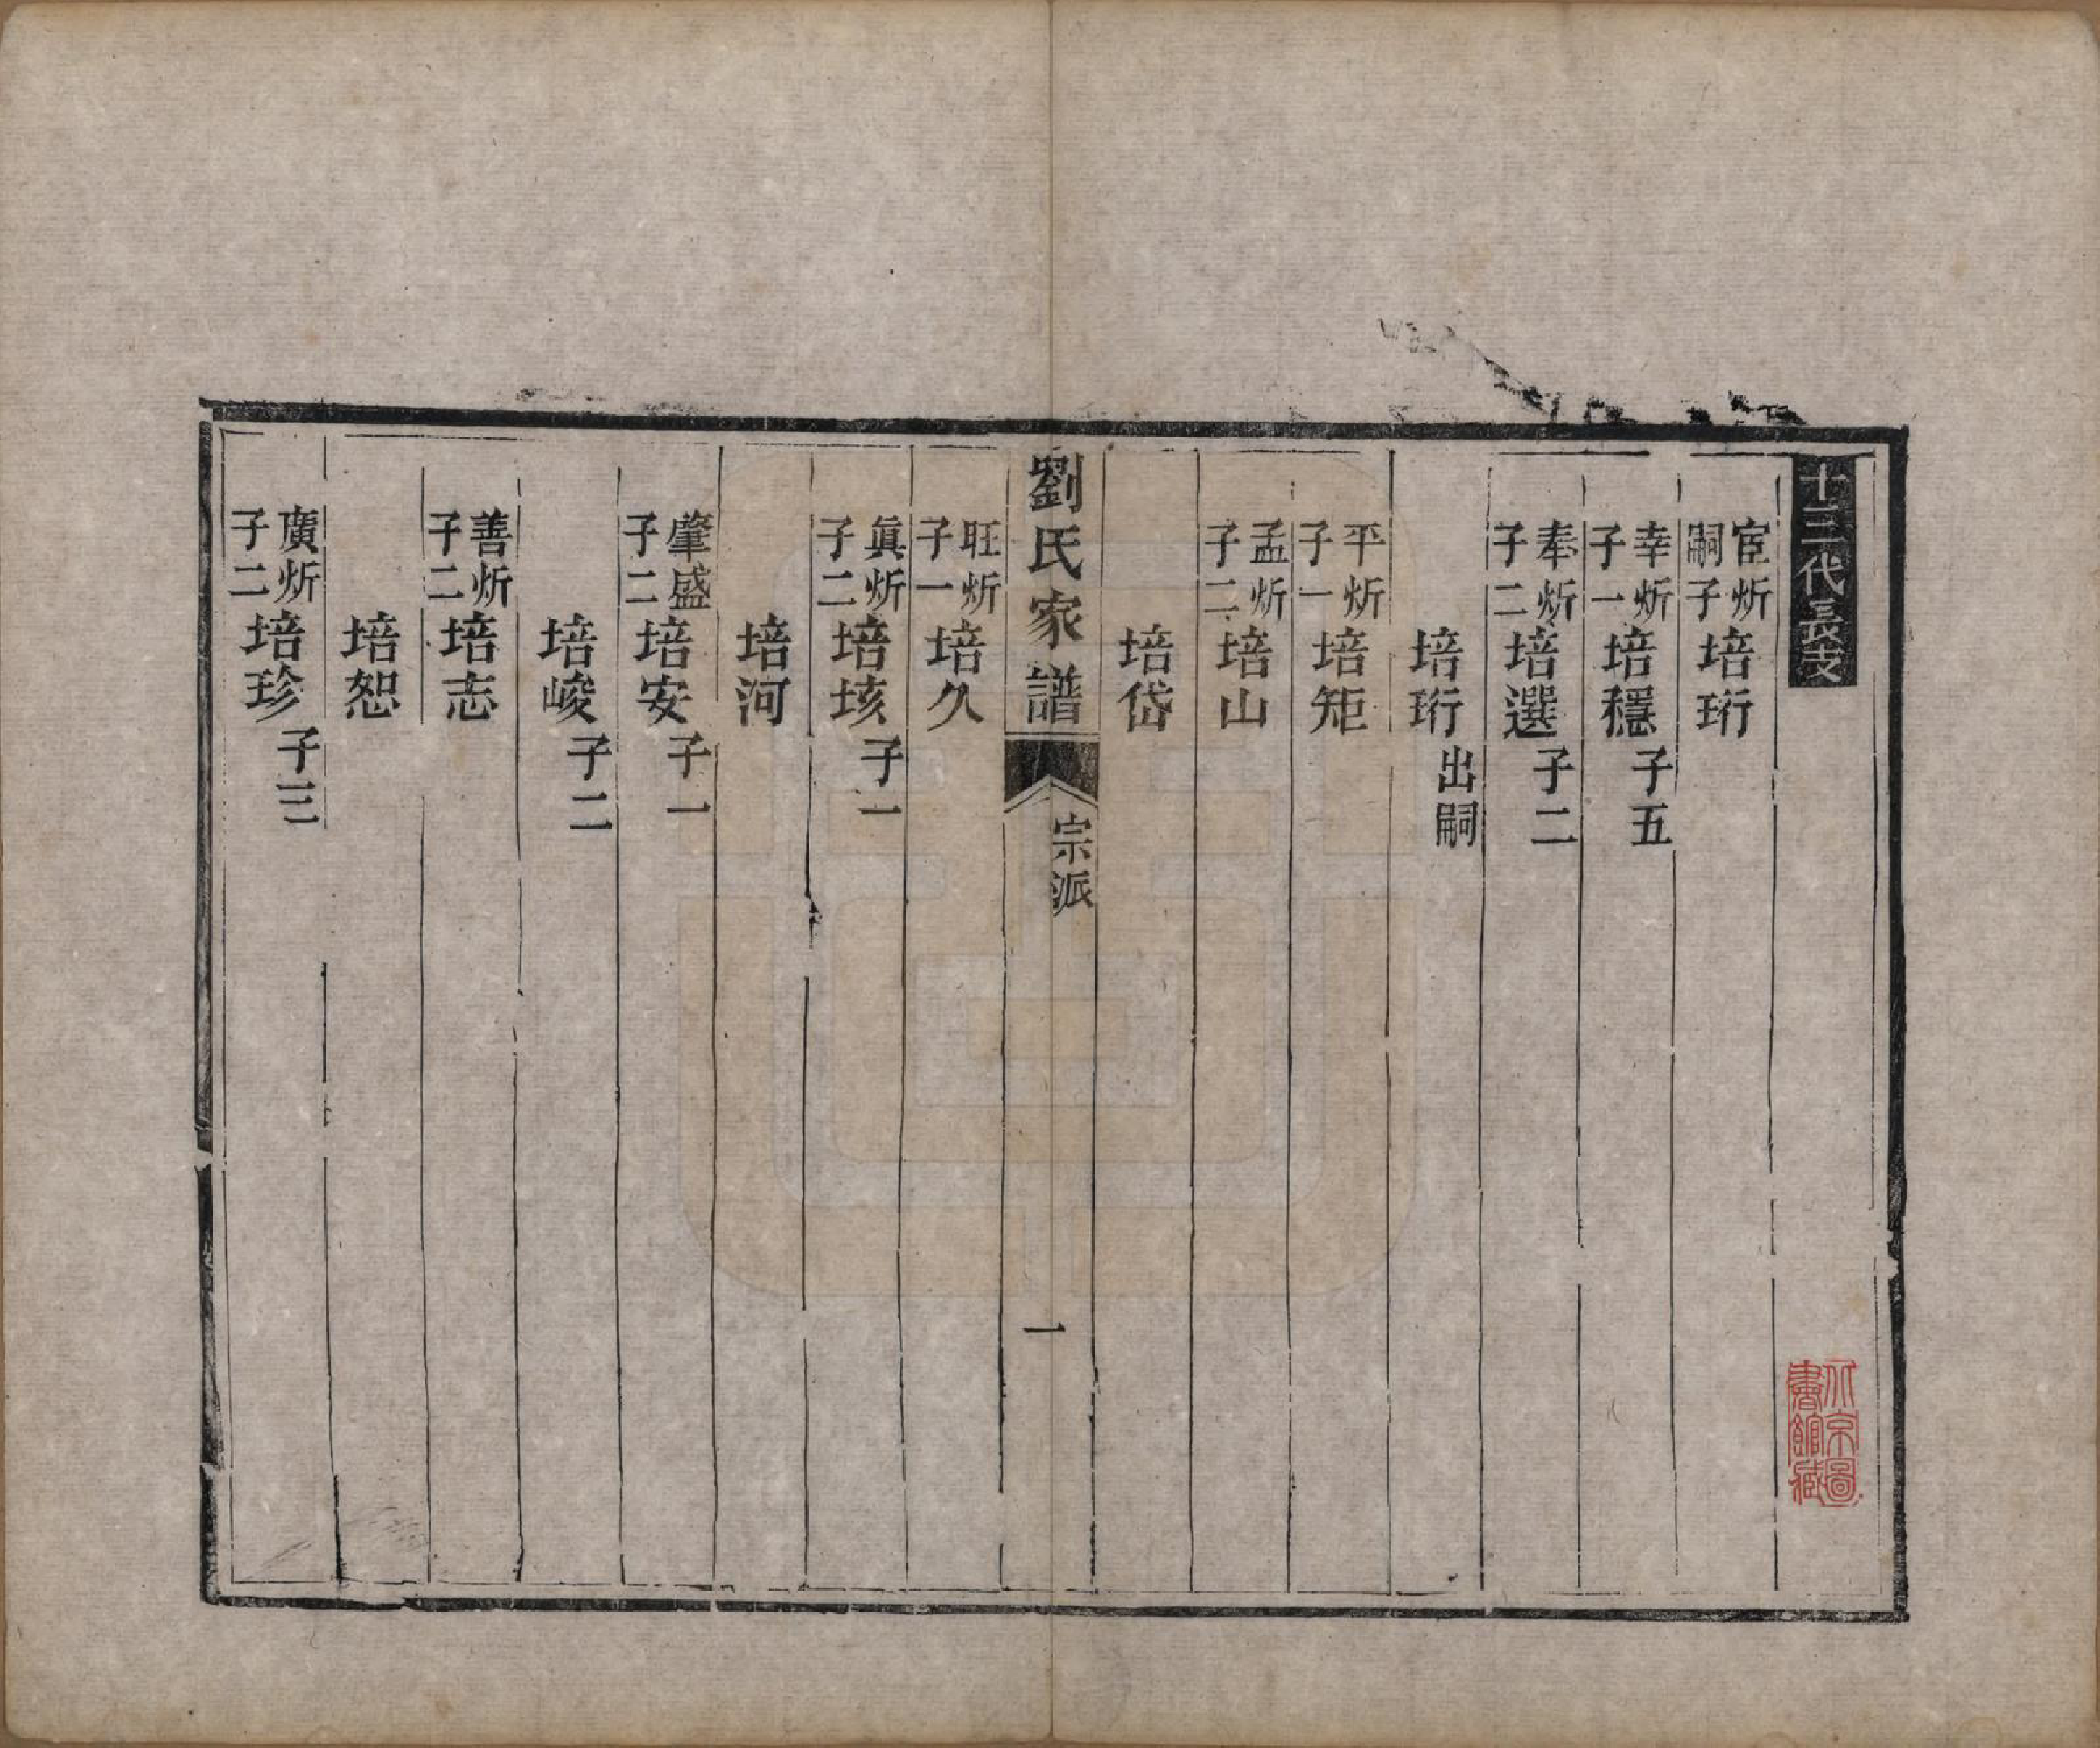 十三代長支
宦炘嗣子培珩
幸炘子一培穩子五
奉炘子二培選子二
培珩出嗣
平炘子一培矩
孟炘子二培山
培岱
劉氏家譜 宗派 一
旺炘子一培久
眞炘子二培垓子一
培河
肇盛子二培安子一
培峻子二
善炘子二培志
培恕
廣炘子二培珍子三
北京圖書館藏